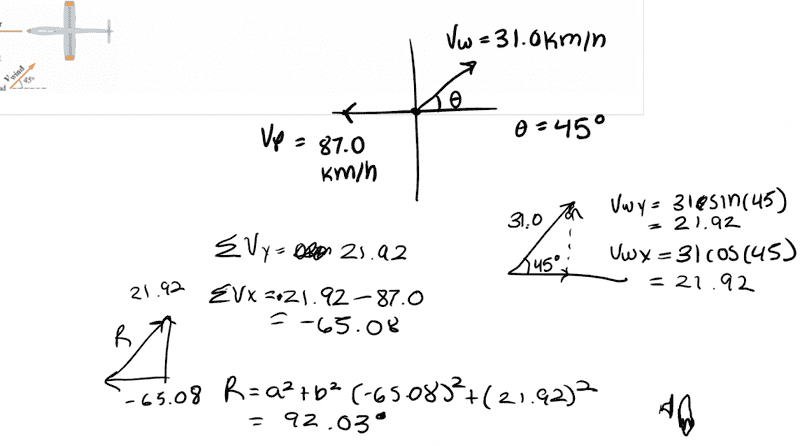 Vwind
45°
Vw = 31.0km/h
θ
Vp = 87.0
km/h
θ = 45°
31.0
45°
Vwy = 31 sin(45)
= 21.92
Vwx = 31 cos(45)
= 21.92
ΣVy = 21.92
ΣVx = 21.92 - 87.0
= -65.08
21.92
R
-65.08
R = a² + b² (-65.08)² + (21.92)²
= 92.03°